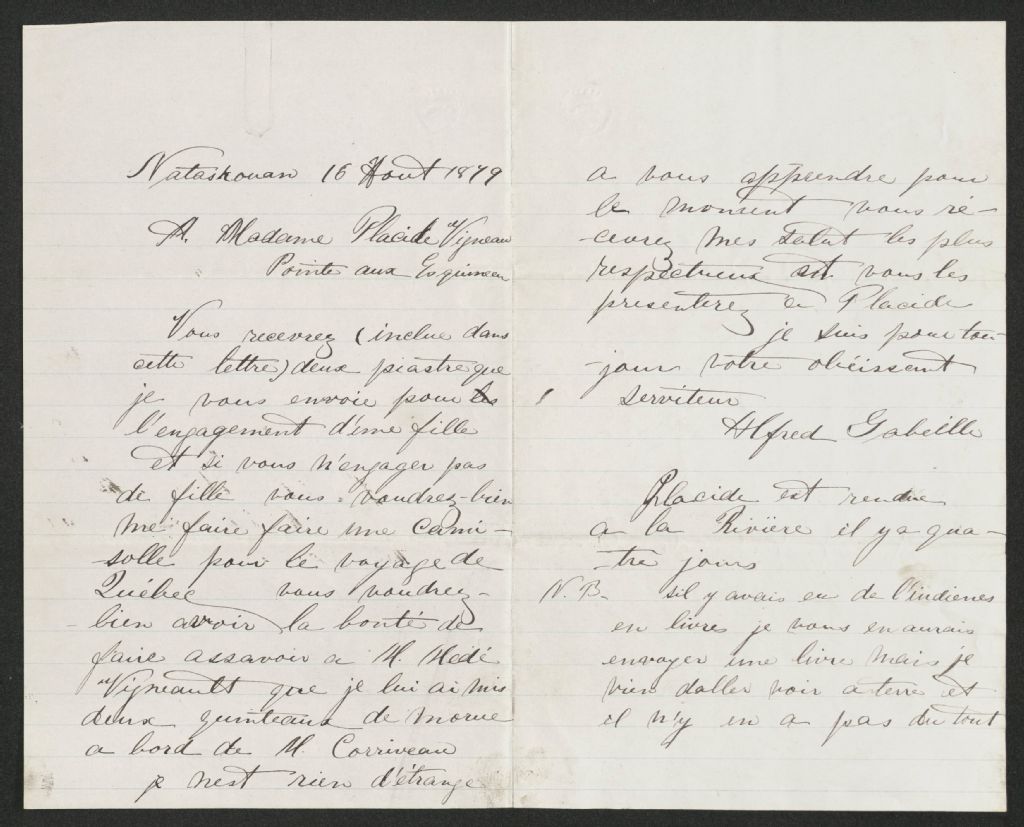 Nataskouan 16 Aout 1879
A. Madame Placide Vigneau
Pointe aux Esquimau
Vous recevrez (inclue dans
cette lettre) deux piastre que
je vous envoie pour les
l'engagement d'une fille
et si vous n'engager pas
de fille vous voudrez-bien
me faire faire une cami-
solle pour le voyage de
Québec vous voudrez-
-bien avoir la bonté de
faire assavoir a M. Hedé
Vigneault que je lui ai mis
deux quinteaux de morue
a bord de M. Corriveau
je nest rien d'étrange
a vous apprendre pour
le moment vous re-
-cevrez mes salut les plus
respectueux et vous les
presenterez a Placide
je suis pour tou-
-jour votre obéissant
serviteur
Alfred Gabeille
Placide est rendue
a la Rivière il y a qua-
-tre jours
N. B. sil y avais eu de l'indienes
en livres je vous en aurais
envoyer une livre mais je
vien daller voir a terre et
il n'y en a pas du tout